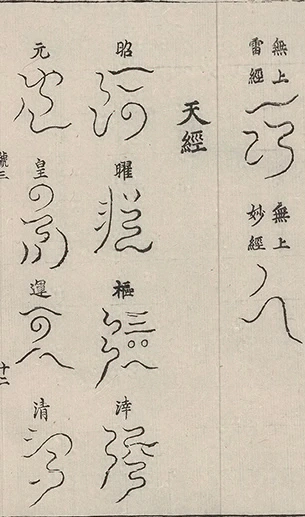 無上雷經
無上妙經
天經
昭
曜
樞
涬
元
皇
運
清
號三
十二